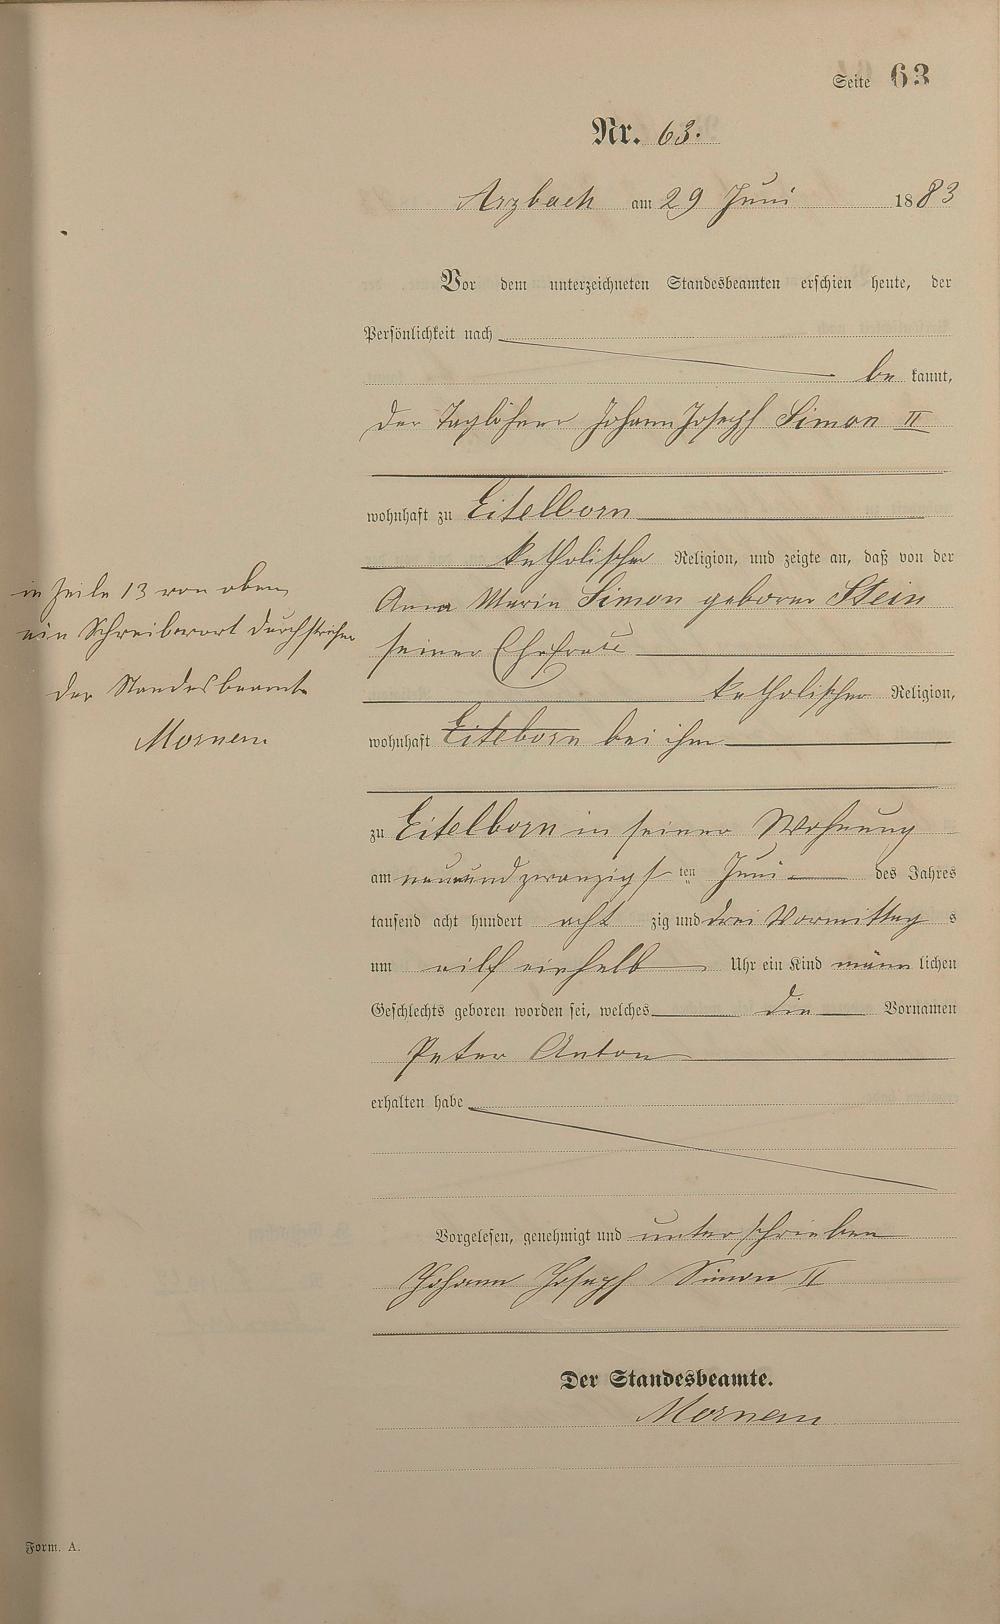 Seite 63
Nr. 63.
Arzbach am 29 Juni 1883
Vor dem unterzeichneten Standesbeamten erschien heute, der
Persönlichkeit nach
be kannt,
der Taglöhner Johann Joseph Simon II
wohnhaft zu Eitelborn
katholischer Religion, und zeigte an, daß von der
Anna Maria Simon geborne Stein
seiner Ehefrau
katholischer Religion,
wohnhaft Eitelborn bei ihm
zu Eitelborn in seiner Wohnung
am neunundzwanzigsten Juni des Jahres
tausend acht hundert acht zig und drei Vormittag s
um eilf einhalb Uhr ein Kind männlichen
Geschlechts geboren worden sei, welches die Vornamen
Peter Anton
erhalten habe
Vorgelesen, genehmigt und unterschrieben
Johann Joseph Simon II
Der Standesbeamte.
in Zeile 13 von oben
ein Schreibwort durchstrichen
der Standesbeamte
Form. A.